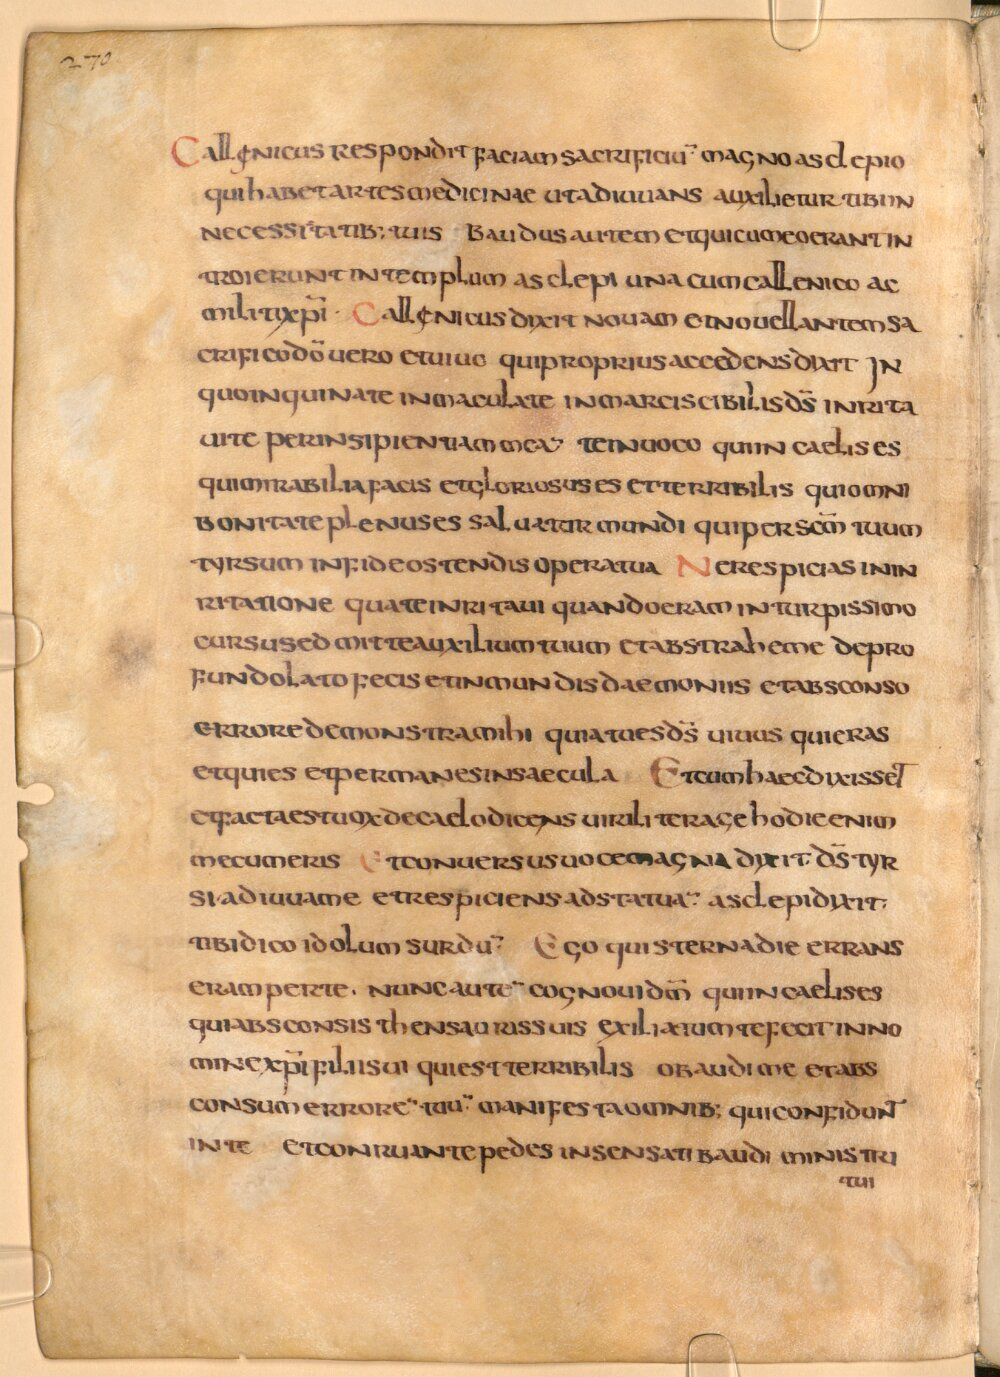 270
Callenicus respondit faciam sacrificiū magno asclepio
qui habet artes medicinae ut adiuuans auxilietur tibi in
necessitatib; tuis Baudus autem et qui cum eo erant in
troierunt in templum asclepi una cum callenico ac
militi xp̄i · Callenicus dixit nouam et nouellantem sa
crifico dō uero et uiuo qui proprius accedens dixit In
quoinquinate inmaculate inmarciscibilis d̄s inrita
ui te per insipientiam meā te inuoco qui in caelis es
qui mirabilia facis et gloriosus es et terribilis qui omni
bonitate plenus es saluatur mundi qui per scm̄ tuum
tyrsum in fide ostendis opera tua Ne respicias in in
ritatione qua te inritaui quando eram in turpissimo
cursu sed mitte auxilium tuum et abstrahe me de pro
fundo lato fecis et inmundis daemoniis et absconso
errore demonstra mihi quia tu es d̄s uiuus qui eras
et qui es et permanes in saecula Et cum haec dixisset
et facta est uox de caelo dicens uiriliter age hodie enim
mecum eris Et conuersus uoce magna dixit; d̄s tyr
si adiuua me et respiciens ad statuā asclepi dixit;
tibi dico idolum surdū Ego qui sterna die errans
eram per te. nunc autē cognoui dm̄ qui in caelis es
qui absconsis thensauris suis exiliarium te fecit in no
mine xp̄i filii sui qui est terribilis obaudi me et abs
consum errorē tuū manifesta omnib; qui confidunt
in te et conruant e pedes insensati baudi ministri
tui